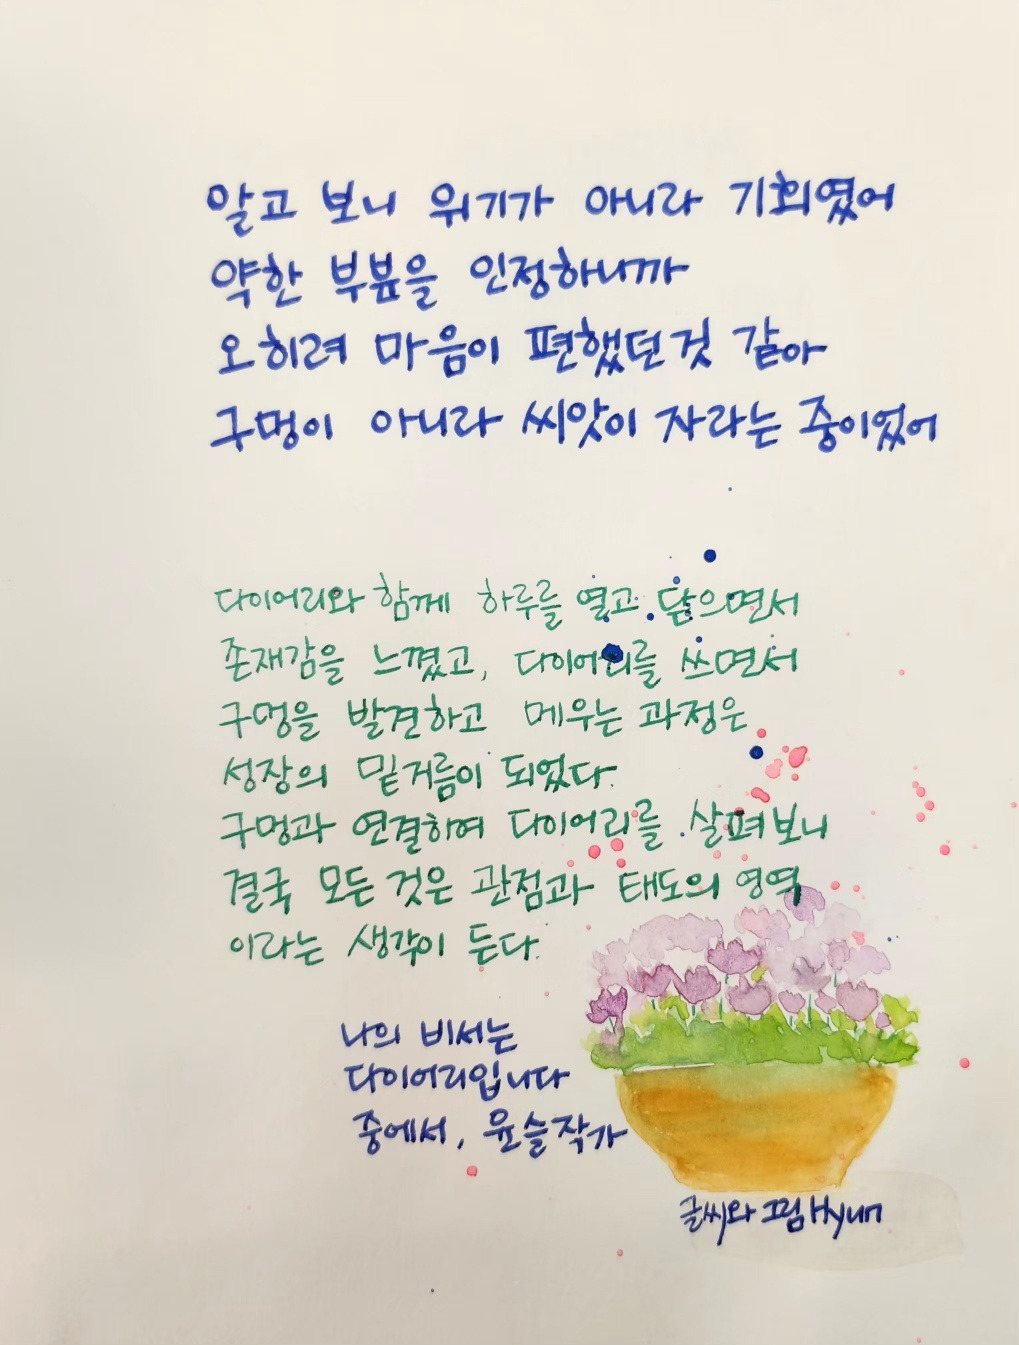 알고 보니 위기가 아니라 기회였어
약한 부분을 인정하니까
오히려 마음이 편했던 것 같아
구멍이 아니라 씨앗이 자라는 중이었어
다이어리와 함께 하루를 열고 닫으면서
존재감을 느꼈고, 다이어리를 쓰면서
구멍을 발견하고 메우는 과정은
성장의 밑거름이 되었다.
구멍과 연결하여 다이어리를 살펴보니
결국 모든 것은 관점과 태도의 영역
이라는 생각이 든다.
나의 비서는
다이어리입니다
중에서, 윤슬작가
글씨와 그림 Hyun